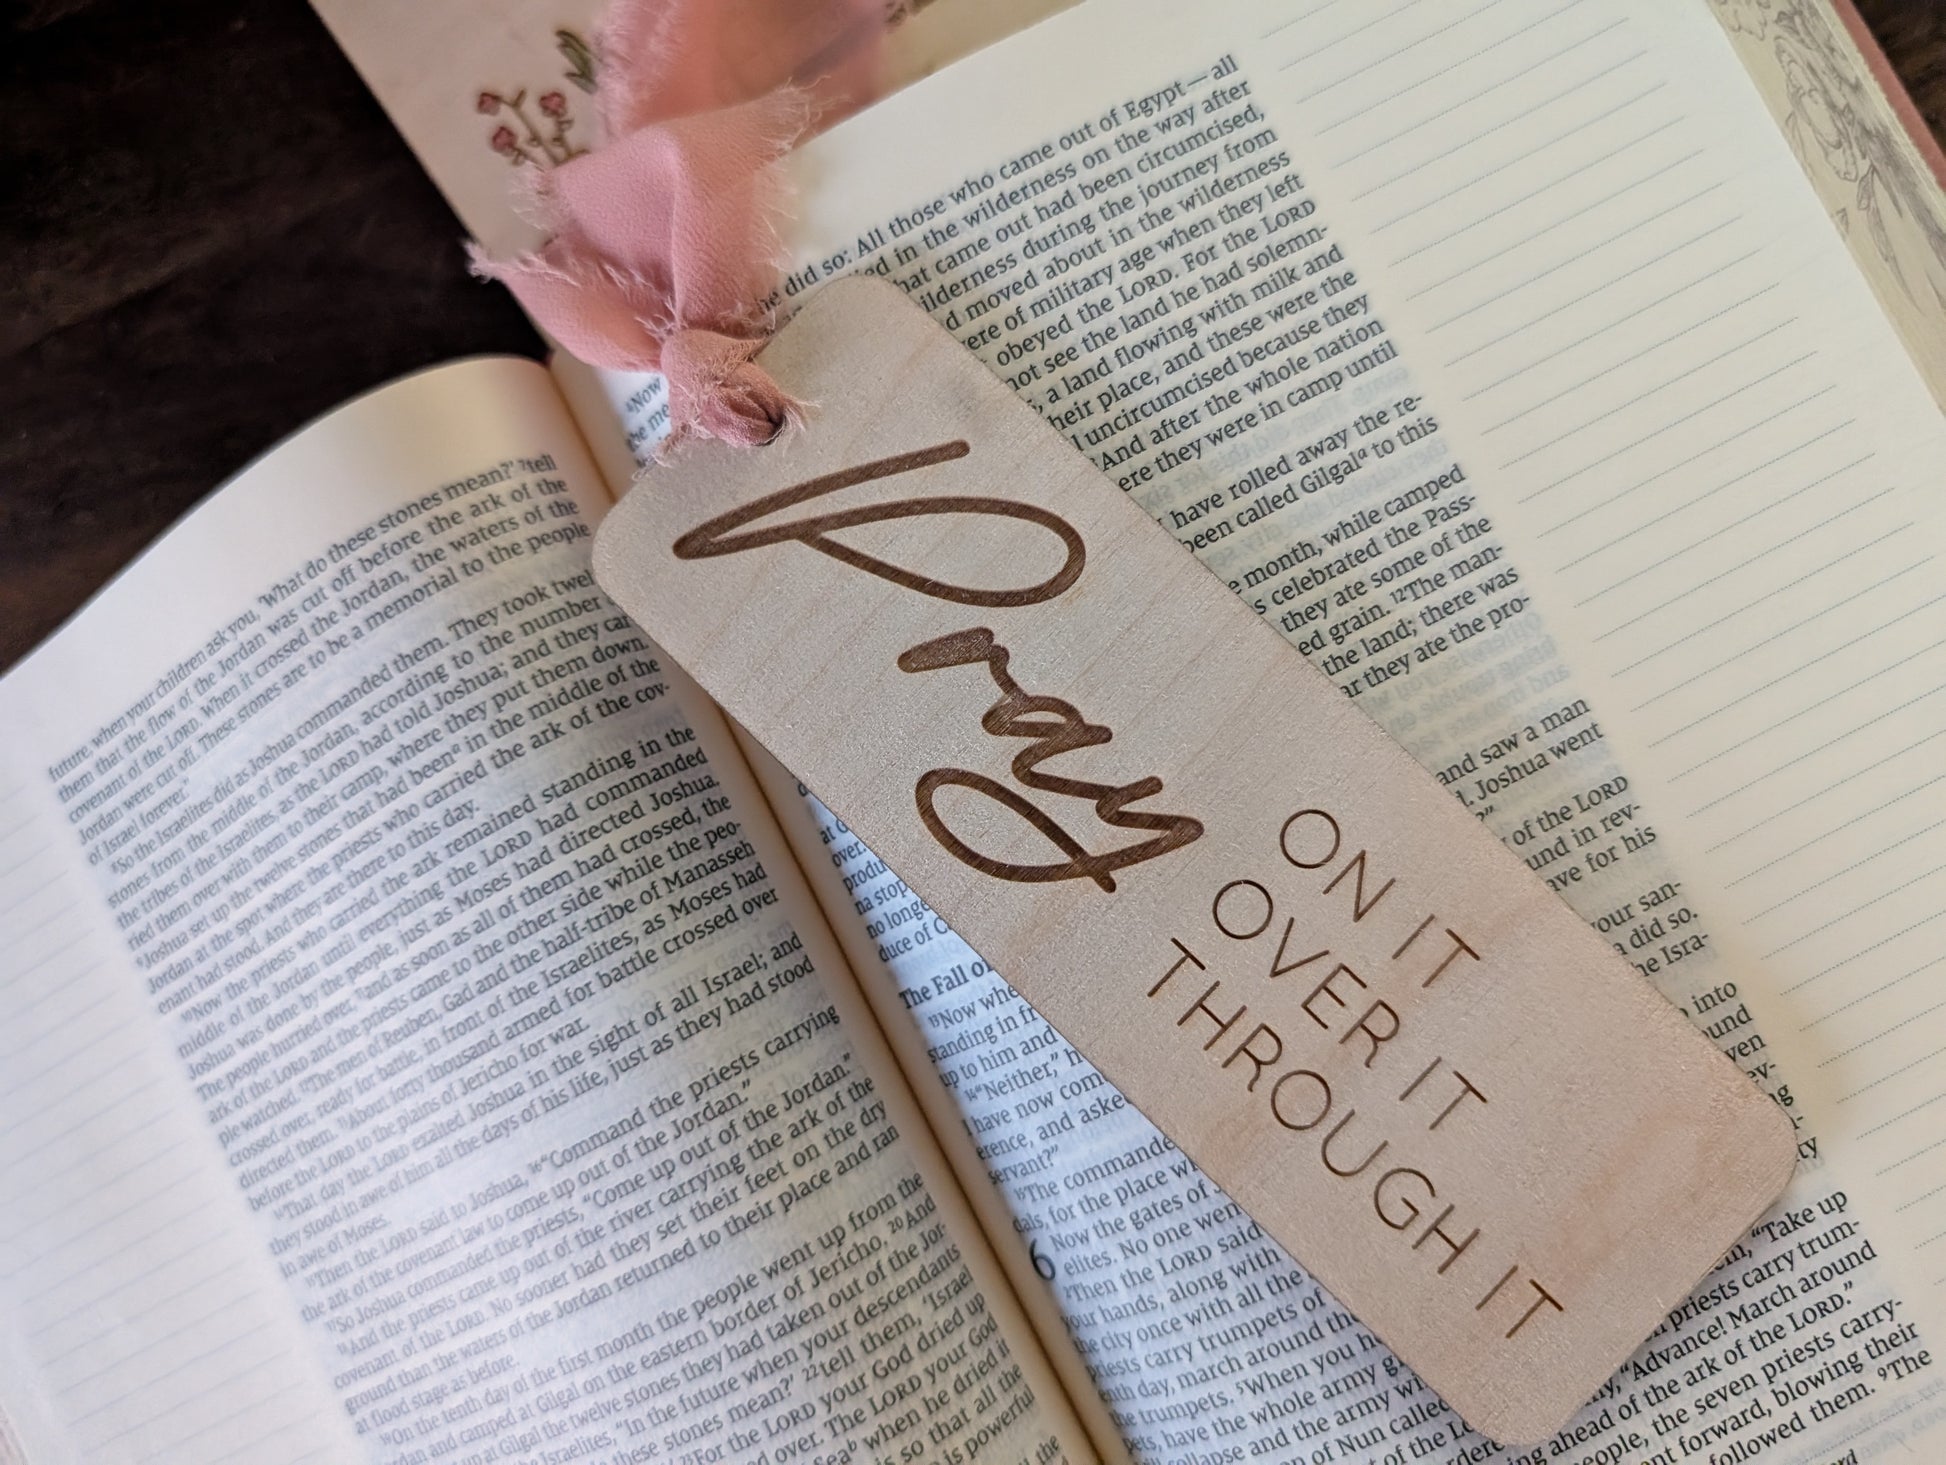 future, when your children ask you, 'What do these stones mean?' ⁷tell
them that the flow of the Jordan was cut off before the ark of the
covenant of the LORD. When it crossed the Jordan, the waters of the
Jordan were cut off. These stones are to be a memorial to the people
of Israel forever."
⁸So the Israelites did as Joshua commanded them. They took
stones from the middle of the Jordan, according to the number
tribes of the Israelites, as the LORD had told Joshua; and they
ried them over with them to their camp, where they put them down.
⁹Joshua set up the twelve stones that had been ᵃ in the middle of the
Jordan at the spot where the priests who carried the ark of the cov-
enant had stood. And they are there to this day.
¹⁰Now the priests who carried the ark remained standing in the
middle of the Jordan until everything the LORD had commanded
Joshua was done by the people, just as Moses had directed Joshua.
The people hurried over, ¹¹and as soon as all of them had crossed, the
ark of the LORD and the priests came to the other side while the peo-
ple watched. ¹²The men of Reuben, Gad and the half-tribe of Manasseh
crossed over, ready for battle, in front of the Israelites, as Moses had
directed them. ¹³About forty thousand armed for battle crossed over
before the LORD to the plains of Jericho for war.
¹⁴That day the LORD exalted Joshua in the sight of all Israel; and
they stood in awe of him all the days of his life, just as they had stood
in awe of Moses.
¹⁵Then the LORD said to Joshua, ¹⁶"Command the priests carrying
the ark of the covenant law to come up out of the Jordan."
¹⁷So Joshua commanded the priests, "Come up out of the Jordan."
¹⁸And the priests came up out of the river carrying the ark of the
covenant of the LORD. No sooner had they set their feet on the dry
ground than the waters of the Jordan returned to their place and ran
at flood stage as before.
¹⁹On the tenth day of the first month the people went up from the
and camped at Gilgal on the eastern border of Jericho. ²⁰And
up at Gilgal the twelve stones they had taken out of the Jor-
the Israelites, "In the future when your descendants
these stones mean?' ²²tell them, 'Israel
²³For the LORD your God dried up
over. The LORD your God
when he dried it
so that all the
is powerful
the
Pray
ON IT
OVER IT
THROUGH IT
he did so: All those who came out of Egypt — all
in the wilderness on the way after
that came out had been circumcised,
wilderness during the journey from
moved about in the wilderness
were of military age when they left
obeyed the LORD. For the LORD
not see the land he had solemn-
a land flowing with milk and
their place, and these were the
uncircumcised because they
And after the whole nation
ere they were in camp until
have rolled away the re-
been called Gilgal ᵃ to this
month, while camped
celebrated the Pass-
they ate some of the
grain. ¹²The man-
the land; there was
they ate the pro-
and saw a man
Joshua went
of the LORD
und in rev-
have for his
your san-
did so.
the Isra-
into
Now
over.
no longe
duce of C
The Fall of
¹³Now whe
standing in
up to him and
¹⁴"Neither," h
I have now com
erence, and aske
servant?"
¹⁵The commande
dals, for the place
6 Now the gates of
elites. No one wen
²Then the LORD said
your hands, along with
the city once with all the
priests carry trumpets of
day, march around the
trumpets. ⁵When you
have the whole army
collapse and the army
of Nun called
of the
"Take up
priests carry trum-
"Advance! March around
ahead of the ark of the LORD."
people, the seven priests carry-
forward, blowing their
followed them. ⁹The